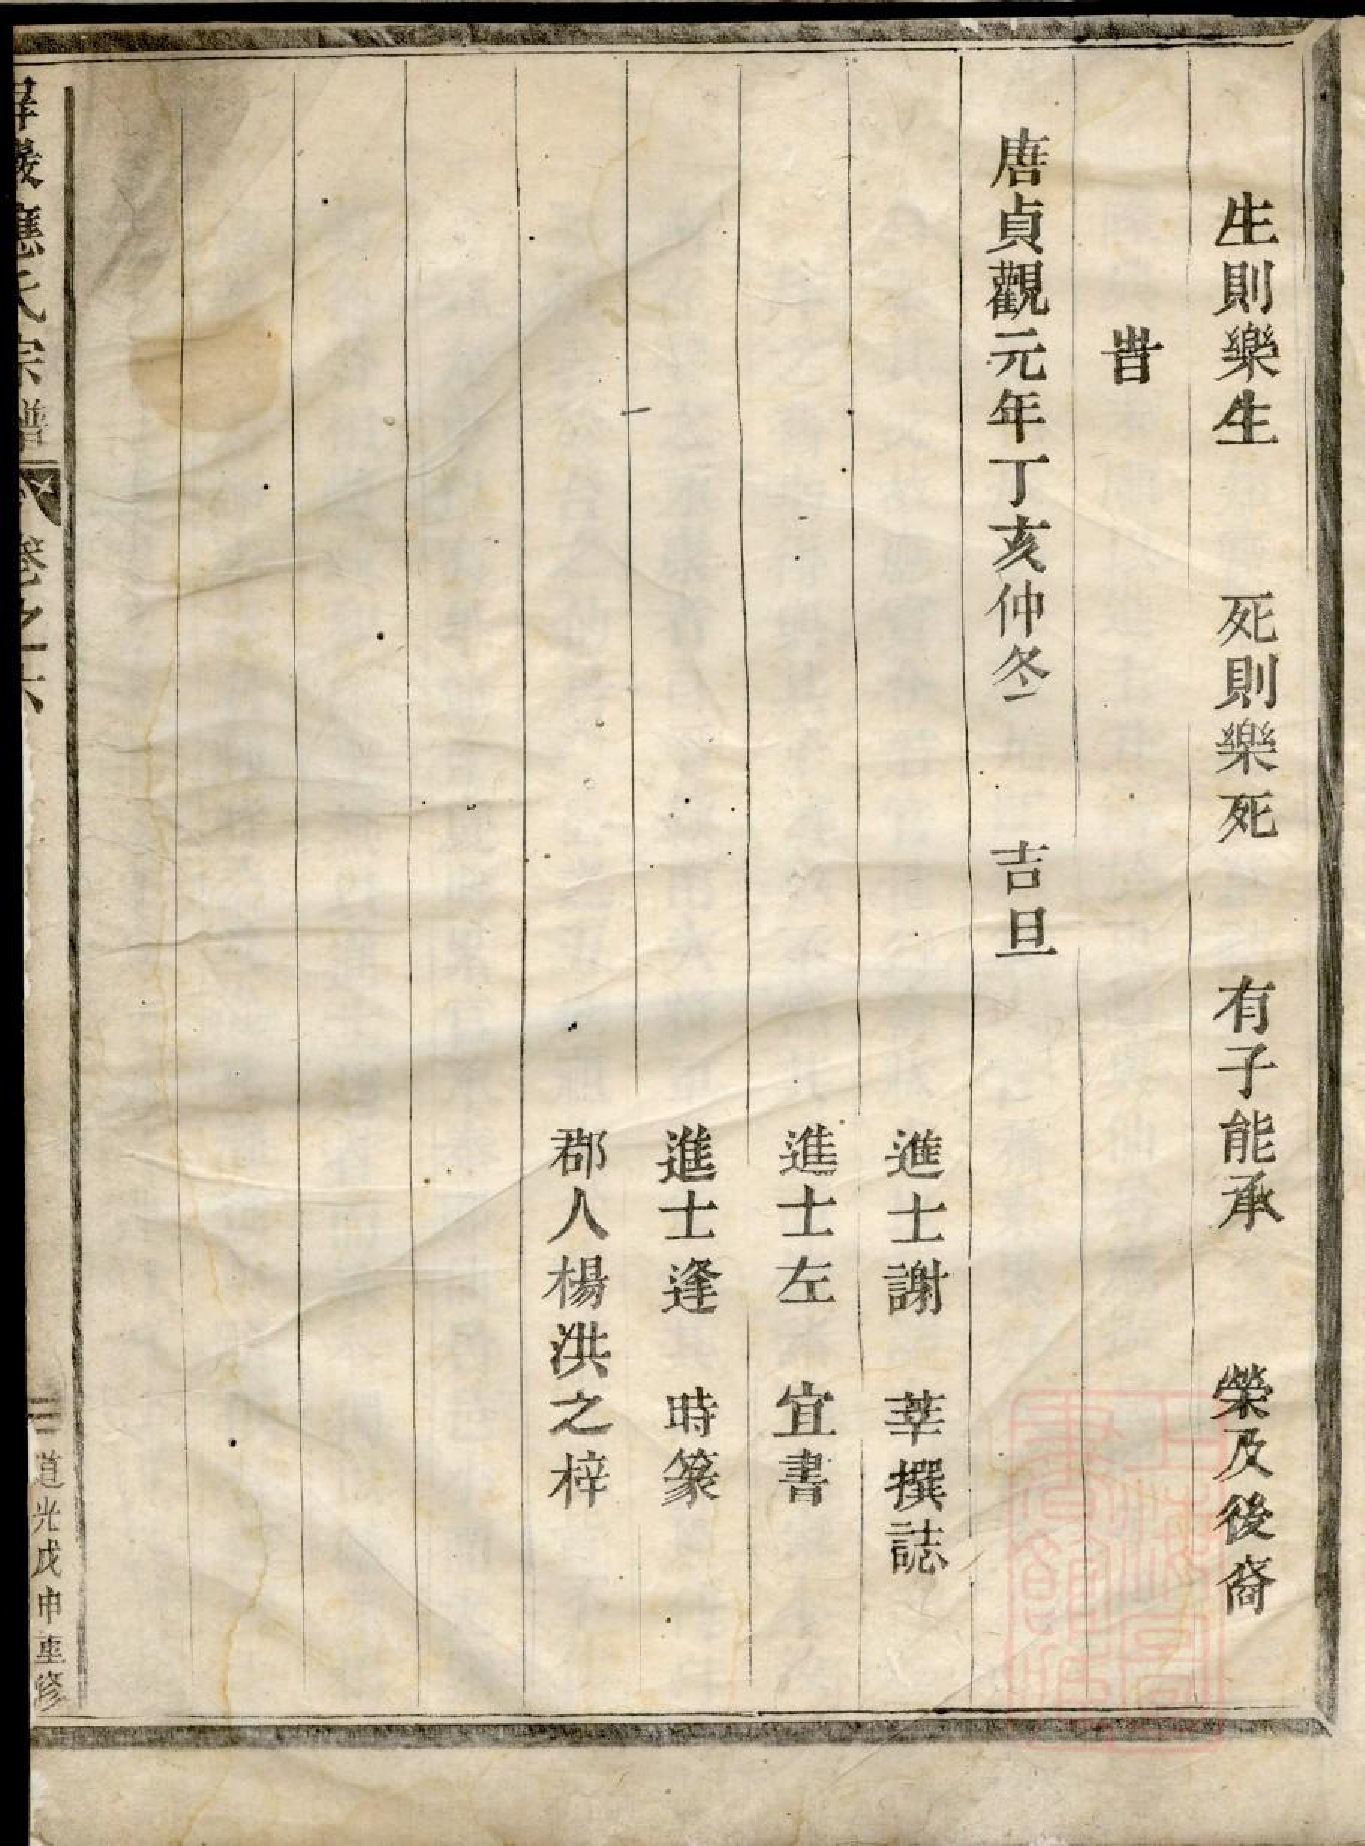 生則樂生　死則樂死　有子能承　榮及後裔
昔
唐貞觀元年丁亥仲冬　吉旦
進士謝　莘撰誌
進士左　宜書
進士逢　時篆
郡人楊洪之梓
屏巖應氏宗譜　卷之六　二　道光戊申重修